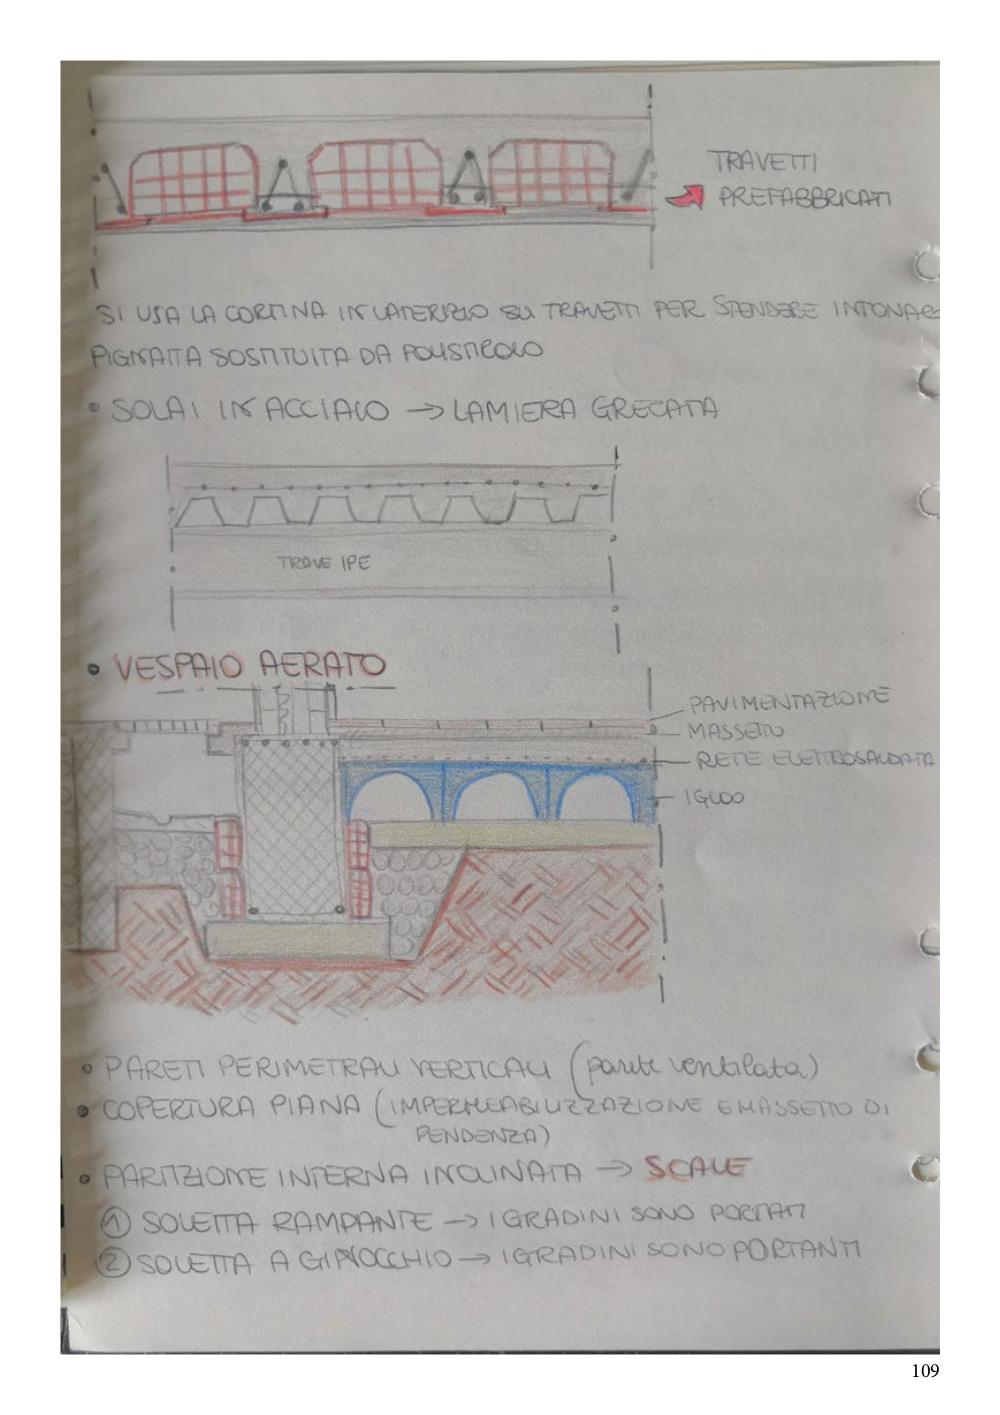 TRAVETTI
PREFABBRICATI
SI USA LA CORTINA IN LATERIZIO SU TRAVETTI PER STENDERE INTONAC
PIGNATTA SOSTITUITA DA POLISTIROLO
• SOLAI IN ACCIAIO → LAMIERA GRECATA
TRAVE IPE
• VESPAIO AERATO
PAVIMENTAZIONE
MASSETTO
RETE ELETTROSALDATA
IGLOO
• PARETI PERIMETRALI VERTICALI (parete ventilata)
• COPERTURA PIANA (IMPERMEABILIZZAZIONE E MASSETTO DI
PENDENZA)
• PARTIZIONE INTERNA INCLINATA → SCALE
① SOLETTA RAMPANTE → I GRADINI SONO PORTATI
② SOLETTA A GINOCCHIO → I GRADINI SONO PORTANTI
109